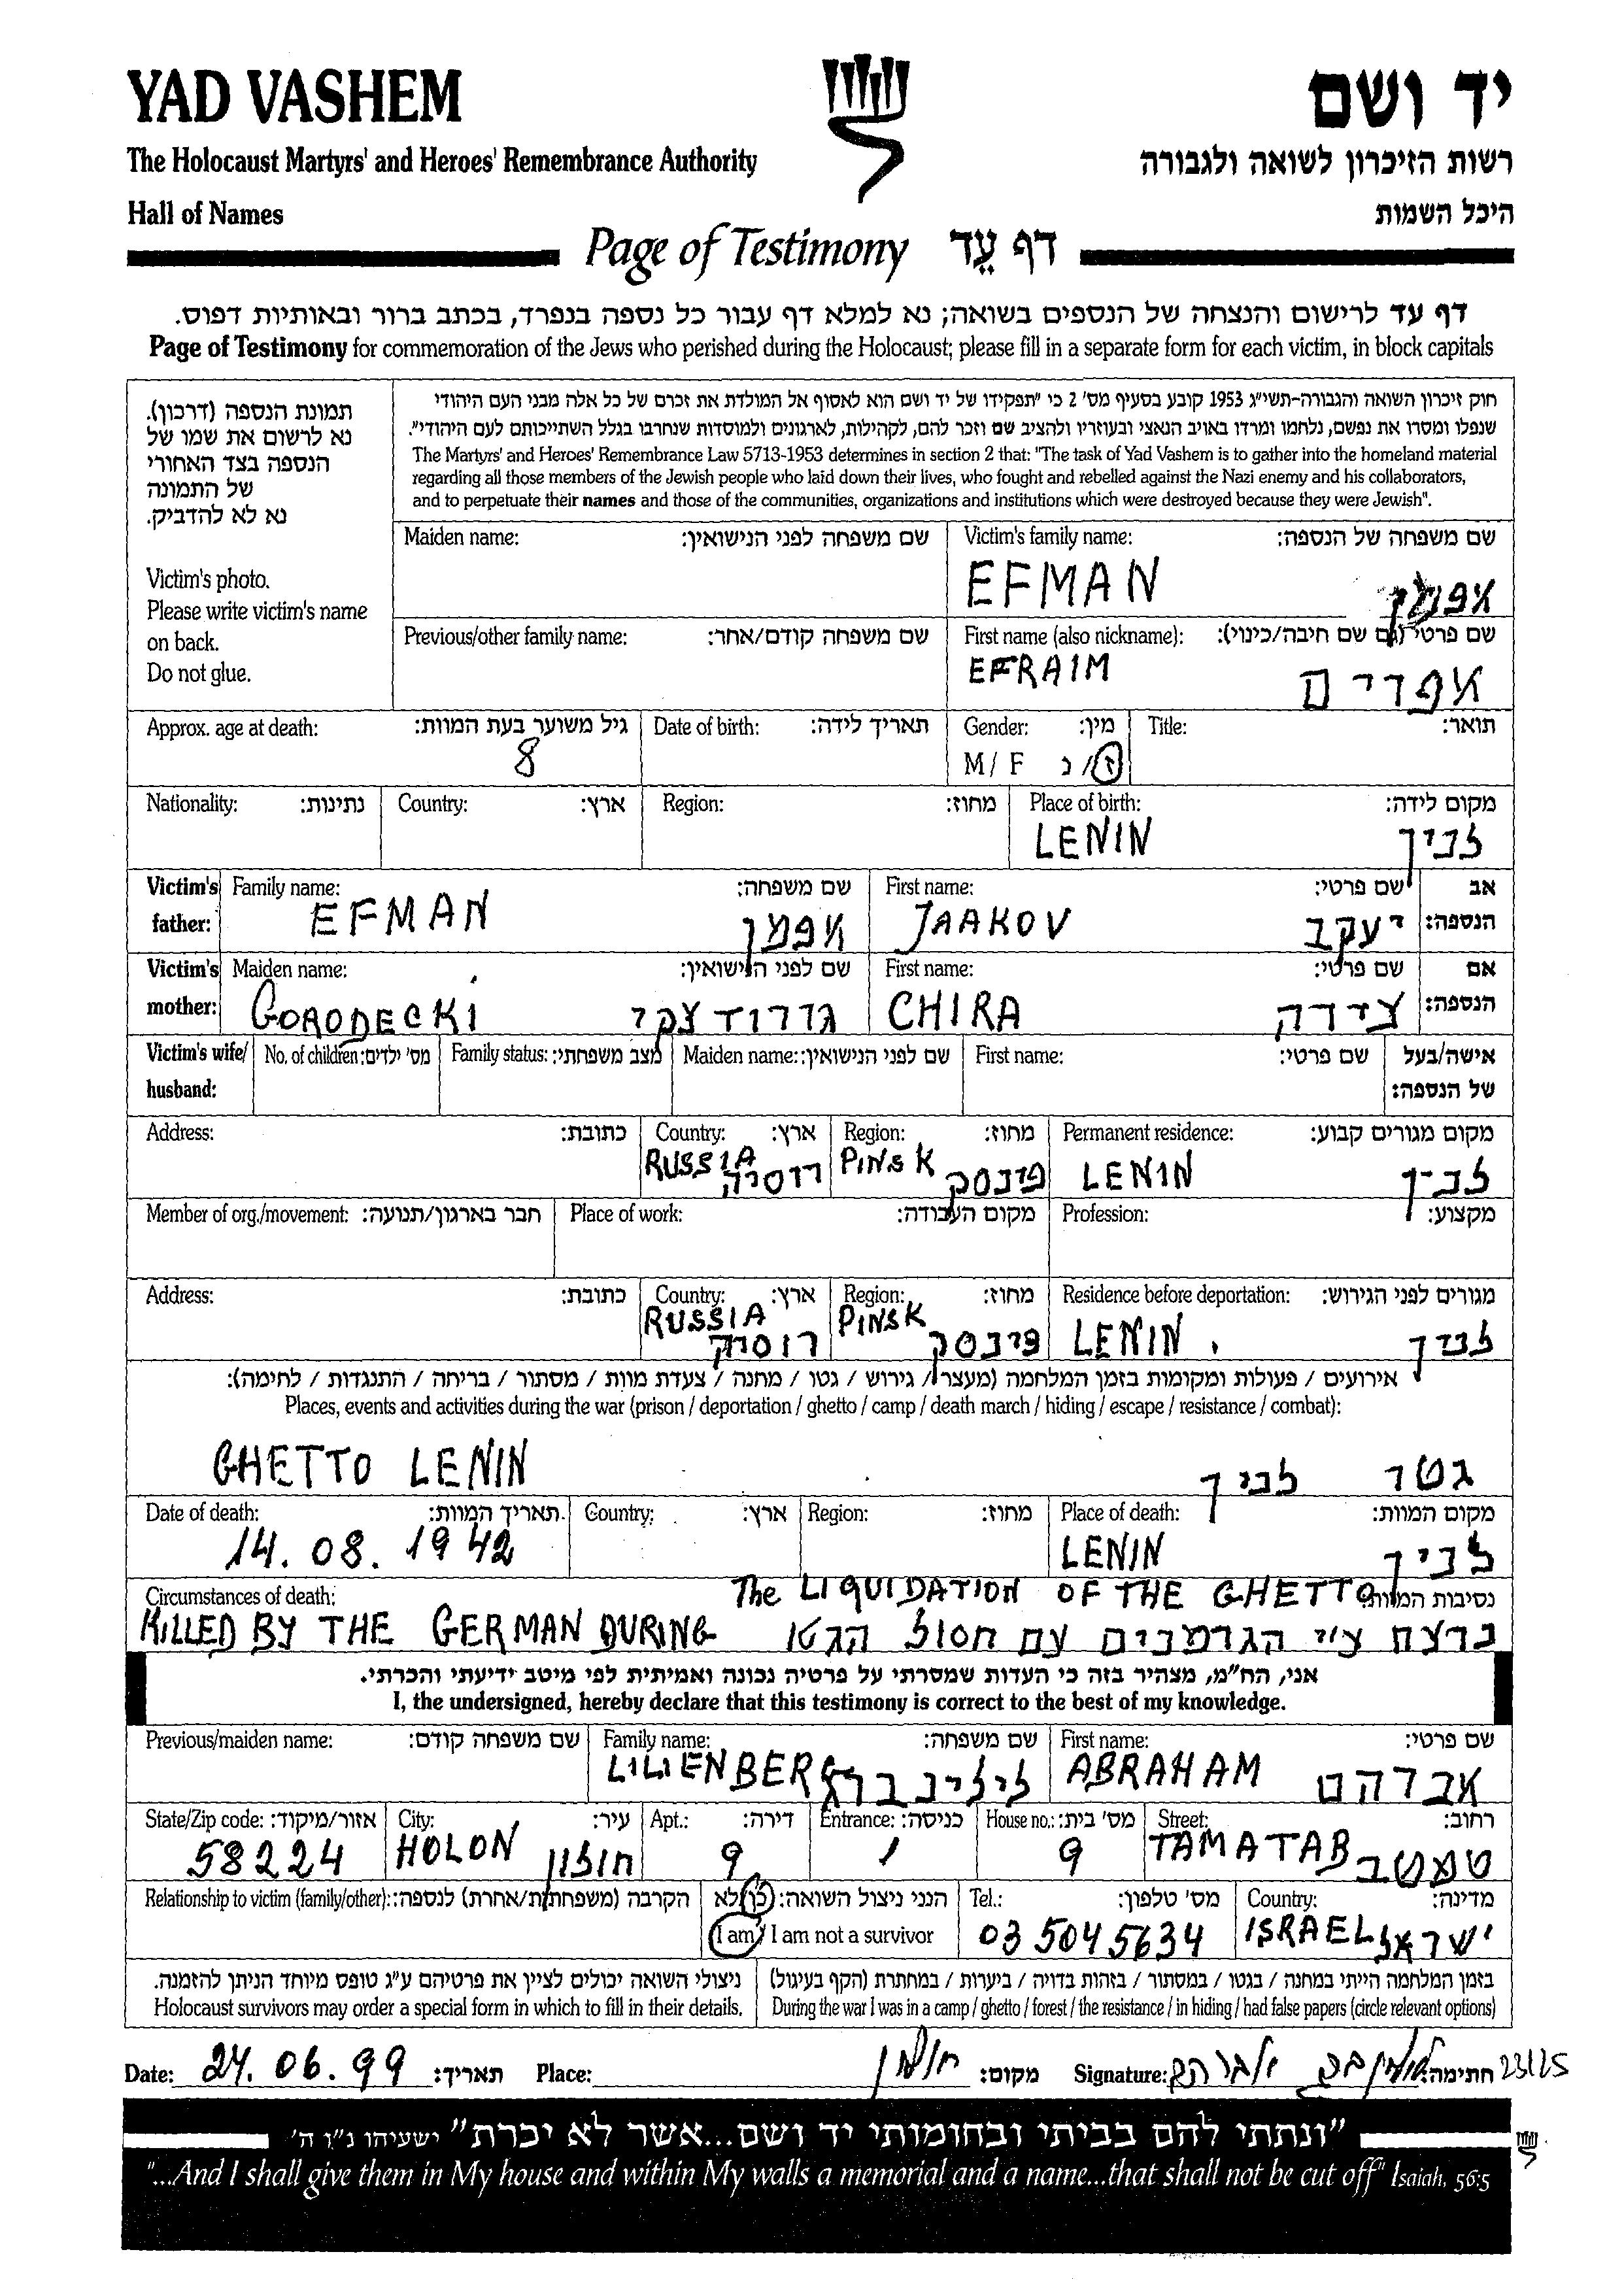 YAD VASHEM
יד ושם
The Holocaust Martyrs' and Heroes' Remembrance Authority
רשות הזיכרון לשואה ולגבורה
Hall of Names
היכל השמות
Page of Testimony דף עֵד
דף עד לרישום והנצחה של הנספים בשואה; נא למלא דף עבור כל נספה בנפרד, בכתב ברור ובאותיות דפוס.
Page of Testimony for commemoration of the Jews who perished during the Holocaust; please fill in a separate form for each victim, in block capitals
תמונת הנספה (דרכון).
נא לרשום את שמו של
הנספה בצד האחורי
של התמונה
נא לא להדביק.
Victim's photo.
Please write victim's name
on back.
Do not glue.
חוק זיכרון השואה והגבורה-תשי"ג 1953 קובע בסעיף מס' 2 כי "תפקידו של יד ושם הוא לאסוף אל המולדת את זכרם של כל אלה מבני העם היהודי
שנפלו ומסרו את נפשם, נלחמו ומרדו באויב הנאצי ובעוזריו ולהציב שם וזכר להם, לקהילות, לארגונים ולמוסדות שנחרבו בגלל השתייכותם לעם היהודי".
The Martyrs' and Heroes' Remembrance Law 5713-1953 determines in section 2 that: "The task of Yad Vashem is to gather into the homeland material
regarding all those members of the Jewish people who laid down their lives, who fought and rebelled against the Nazi enemy and his collaborators,
and to perpetuate their names and those of the communities, organizations and institutions which were destroyed because they were Jewish".
Maiden name: שם משפחה לפני הנישואין: Victim's family name: שם משפחה של הנספה:
EFMAN אפמן
Previous/other family name: שם משפחה קודם/אחר: First name (also nickname): שם פרטי (גם שם חיבה/כינוי):
EFRAIM אפרים
Approx. age at death: גיל משוער בעת המוות: Date of birth: תאריך לידה: Gender: מין: Title: תואר:
8 M / F ז/נ
Nationality: נתינות: Country: ארץ: Region: מחוז: Place of birth: מקום לידה:
LENIN לנין
Victim's father: Family name: שם משפחה: First name: שם פרטי: אב הנספה:
EFMAN אפמן JAAKOV יעקב
Victim's mother: Maiden name: שם לפני הנישואין: First name: שם פרטי: אם הנספה:
GORODECKI גורודצקי CHIRA צירה
Victim's wife/ husband: No. of children: מס' ילדים: Family status: מצב משפחתי: Maiden name: שם לפני הנישואין: First name: שם פרטי: אישה/בעל של הנספה:
Address: כתובת: Country: ארץ: Region: מחוז: Permanent residence: מקום מגורים קבוע:
RUSSIA רוסיה PINSK פינסק LENIN לנין
Member of org./movement: חבר בארגון/תנועה: Place of work: מקום העבודה: Profession: מקצוע:
Address: כתובת: Country: ארץ: Region: מחוז: Residence before deportation: מגורים לפני הגירוש:
RUSSIA רוסיה PINSK פינסק LENIN לנין
אירועים / פעולות ומקומות בזמן המלחמה (מעצר/ גירוש / גטו / מחנה / צעדת מוות / מסתור / בריחה / התנגדות / לחימה):
Places, events and activities during the war (prison / deportation / ghetto / camp / death march / hiding / escape / resistance / combat):
GHETTO LENIN גטו לנין
Date of death: תאריך המוות: Country: ארץ: Region: מחוז: Place of death: מקום המוות:
14.08.1942 LENIN לנין
Circumstances of death: The LIQUIDATION OF THE GHETTO נסיבות המוות:
KILLED BY THE GERMAN DURING נרצח ע"י הגרמנים עם חסול הגטו
אני, הח"מ, מצהיר בזה כי העדות שמסרתי על פרטיה נכונה ואמיתית לפי מיטב ידיעתי והכרתי.
I, the undersigned, hereby declare that this testimony is correct to the best of my knowledge.
Previous/maiden name: שם משפחה קודם: Family name: שם משפחה: First name: שם פרטי:
LILIENBERG לילינברג ABRAHAM אברהם
State/Zip code: אזור/מיקוד: City: עיר: Apt.: דירה: Entrance: כניסה: House no.: מס' בית: Street: רחוב:
58224 HOLON חולון 9 1 9 TAMATAB
Relationship to victim (family/other): הקרבה (משפחתית/אחרת) לנספה: הנני ניצול השואה: כן/לא Tel.: מס' טלפון: Country: מדינה:
I am / I am not a survivor 03 5045634 ISRAEL ישראל
ניצולי השואה יכולים לציין את פרטיהם ע"ג טופס מיוחד הניתן להזמנה.
Holocaust survivors may order a special form in which to fill in their details.
בזמן המלחמה הייתי במחנה / בגטו / במסתור / בזהות בדויה / ביערות / במחתרת (הקף בעיגול)
During the war I was in a camp / ghetto / forest / the resistance / in hiding / had false papers (circle relevant options)
Date: 24.06.99 תאריך: Place: חולון מקום: Signature: חתימה: 23125
"ונתתי להם בביתי ובחומותי יד ושם...אשר לא יכרת" ישעיהו נ"ו ה'
"...And I shall give them in My house and within My walls a memorial and a name...that shall not be cut off" Isaiah, 56:5